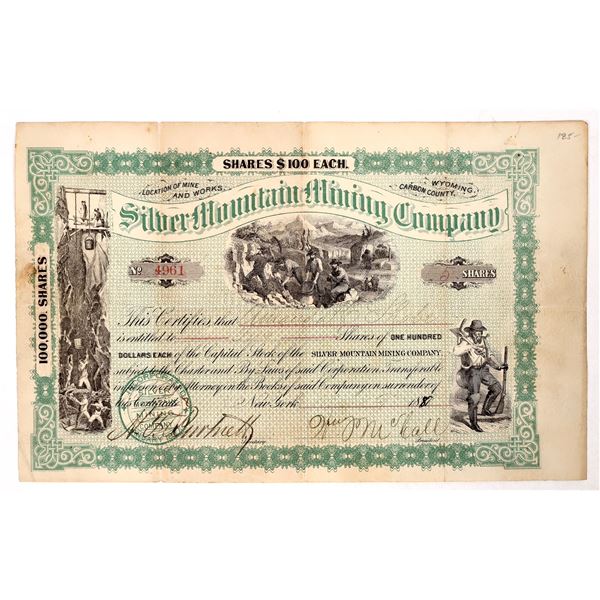 185-
SHARES $100 EACH.
LOCATION OF MINE AND WORKS.
WYOMING. CARBON COUNTY.
Silver Mountain Mining Company
100,000. SHARES
No 4961
5 SHARES
This Certifies that
is entitled to Shares of ONE HUNDRED
DOLLARS EACH of the Capital Stock of the SILVER MOUNTAIN MINING COMPANY.
subject to the Charter and By Laws of said Corporation Transferable
in person or by Attorney on the Books of said Company on surrender of
this Certificate
COMPANY
New York 188
Wm J McCall